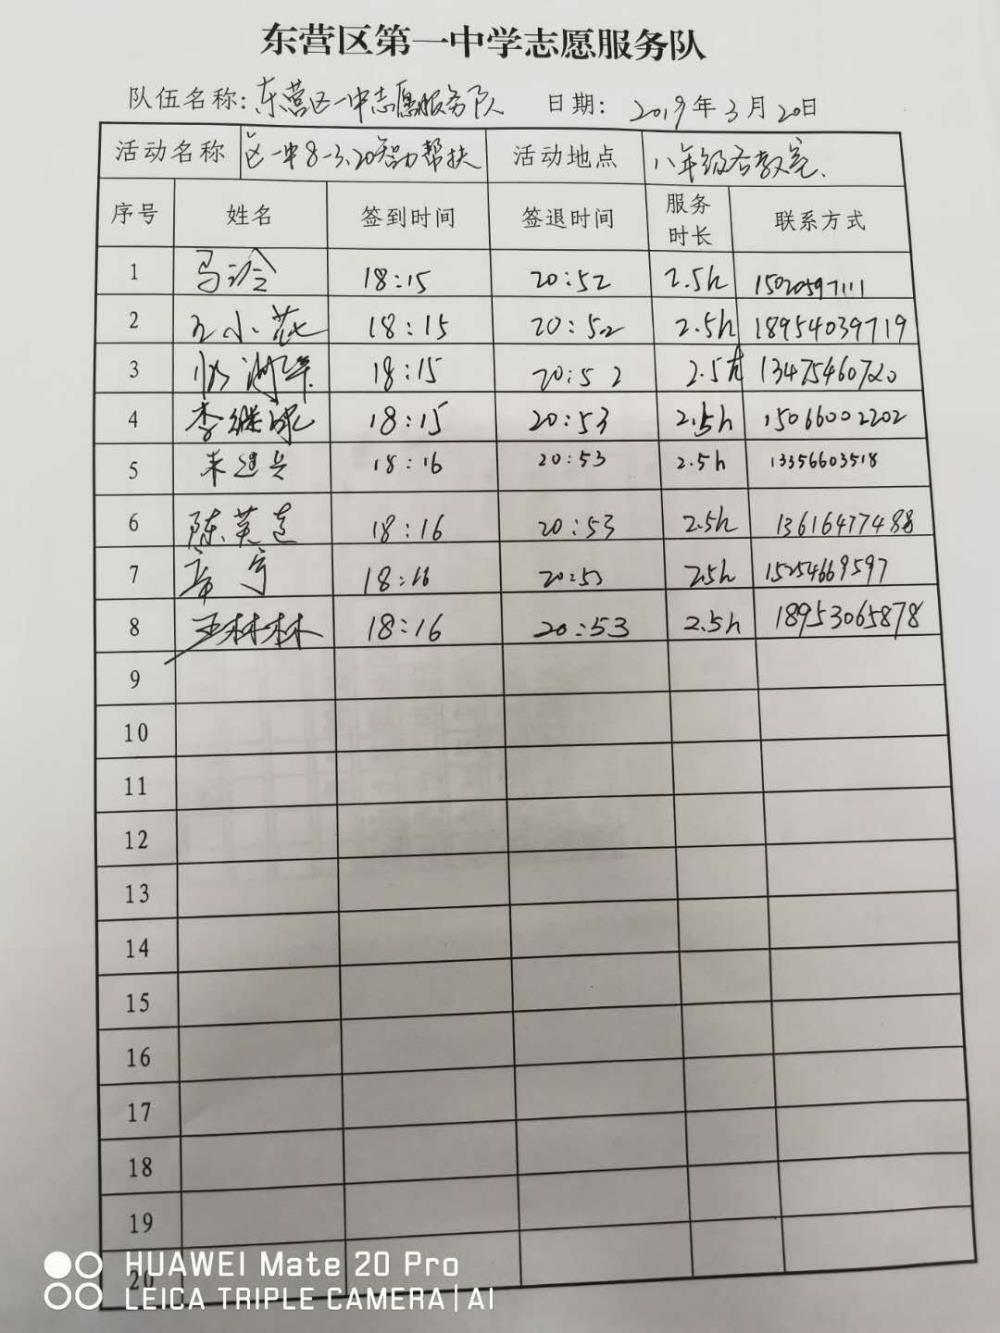 东营区第一中学志愿服务队
队伍名称: 东营区一中志愿服务队 日期: 2019年3月20日
活动名称 区一中8-3.20智力帮扶 活动地点 八年级各教室.
序号 姓名 签到时间 签退时间 服务时长 联系方式
1 马冷 18:15 20:52 2.5h 15020597111
2 王小花 18:15 20:52 2.5h 18954039719
3 18:15 20:52 2.5h 13475460720
4 李继成 18:15 20:53 2.5h 15066002202
5 18:16 20:53 2.5h 13356603518
6 陈英莲 18:16 20:53 2.5h 13616477488
7 18:16 20:53 2.5h 15254669597
8 王林林 18:16 20:53 2.5h 18953065878
9
10
11
12
13
14
15
16
17
18
19
20
HUAWEI Mate 20 Pro
LEICA TRIPLE CAMERA | AI